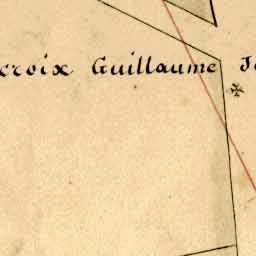 croix Guillaume